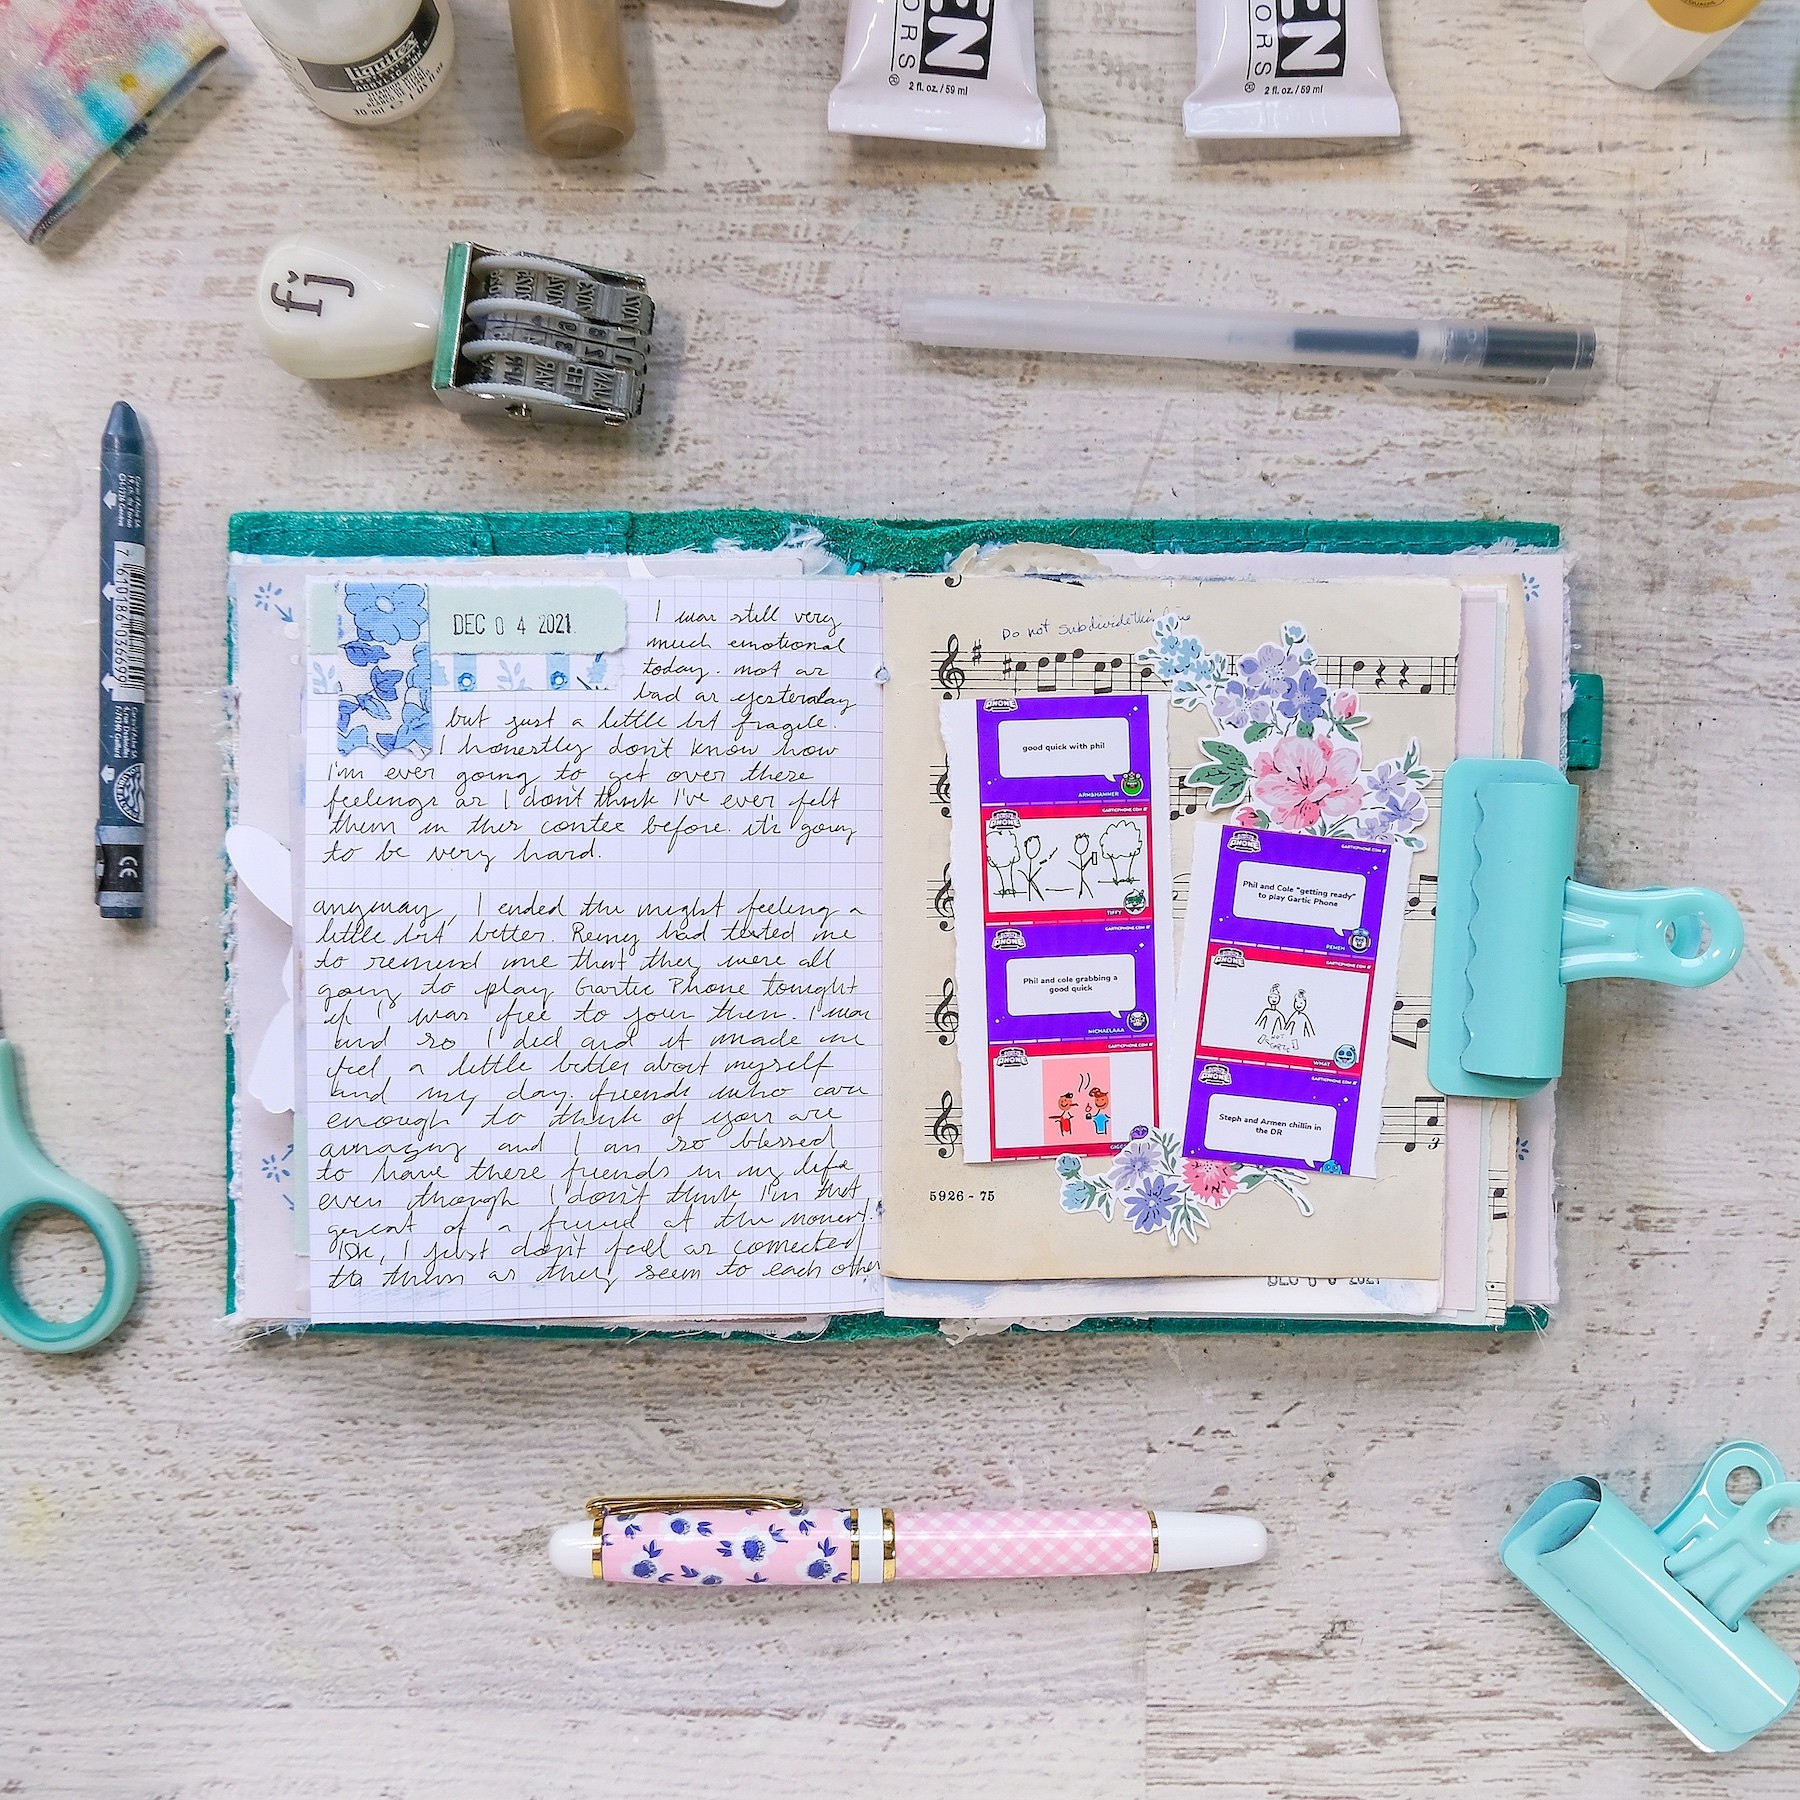 Liquitex
ACRYLIC INK
30 ml e 1 fl oz
EN
ORS
® 2 fl. oz. / 59 ml
EN
ORS
® 2 fl. oz. / 59 ml
fj
MAR
FEB
7 610186 036699
CE
DEC 0 4 2021
I was still very
much emotional
today. not as
bad as yesterday
but just a little bit fragile.
I honestly don't know how
I'm ever going to get over these
feelings as I don't think I've ever felt
them in this contex before. it's going
to be very hard.
anyway, I ended the night feeling a
little bit better. Remy had texted me
to remind me that they were all
going to play Gartic Phone tonight
if I was free to join them. I was
and so I did and it made me
feel a little better about myself
and my day. friends who care
enough to think of you are
amazing and I am so blessed
to have these friends in my life
even though I don't think I'm that
great of a friend at the moment.
Idk, I just don't feel as connected
to them as they seem to each other
Do not subdivide this
PHONE
good quick with phil
ARM&HAMMER
GARTICPHONE.COM
PHONE
TIFFY
GARTICPHONE.COM
PHONE
Phil and cole grabbing a
good quick
MICHAELAAA
GARTICPHONE.COM
PHONE
GARTICPHONE.COM
PHONE
Phil and Cole "getting ready"
to play Gartic Phone
REMEH
GARTICPHONE.COM
PHONE
NOT
GARTIC
WHAT
GARTICPHONE.COM
PHONE
Steph and Armen chillin in
the DR
3
5926 - 75
2021